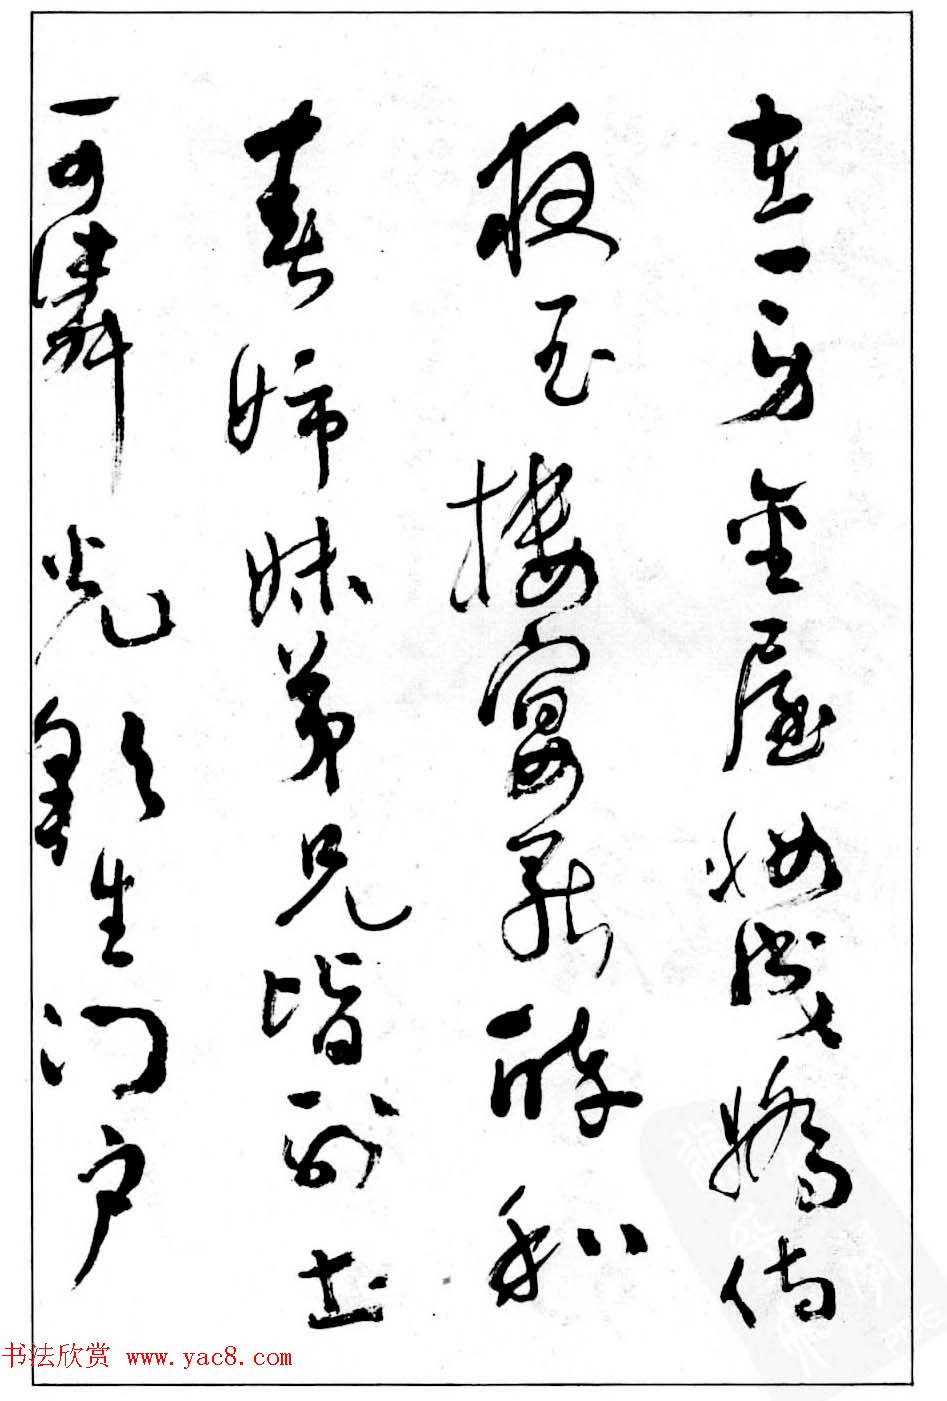 在一身金屋妝成嬌侍
夜玉樓宴罷醉和
春姊妹弟兄皆列土
可憐光彩生门户
书法欣赏 www.yac8.com